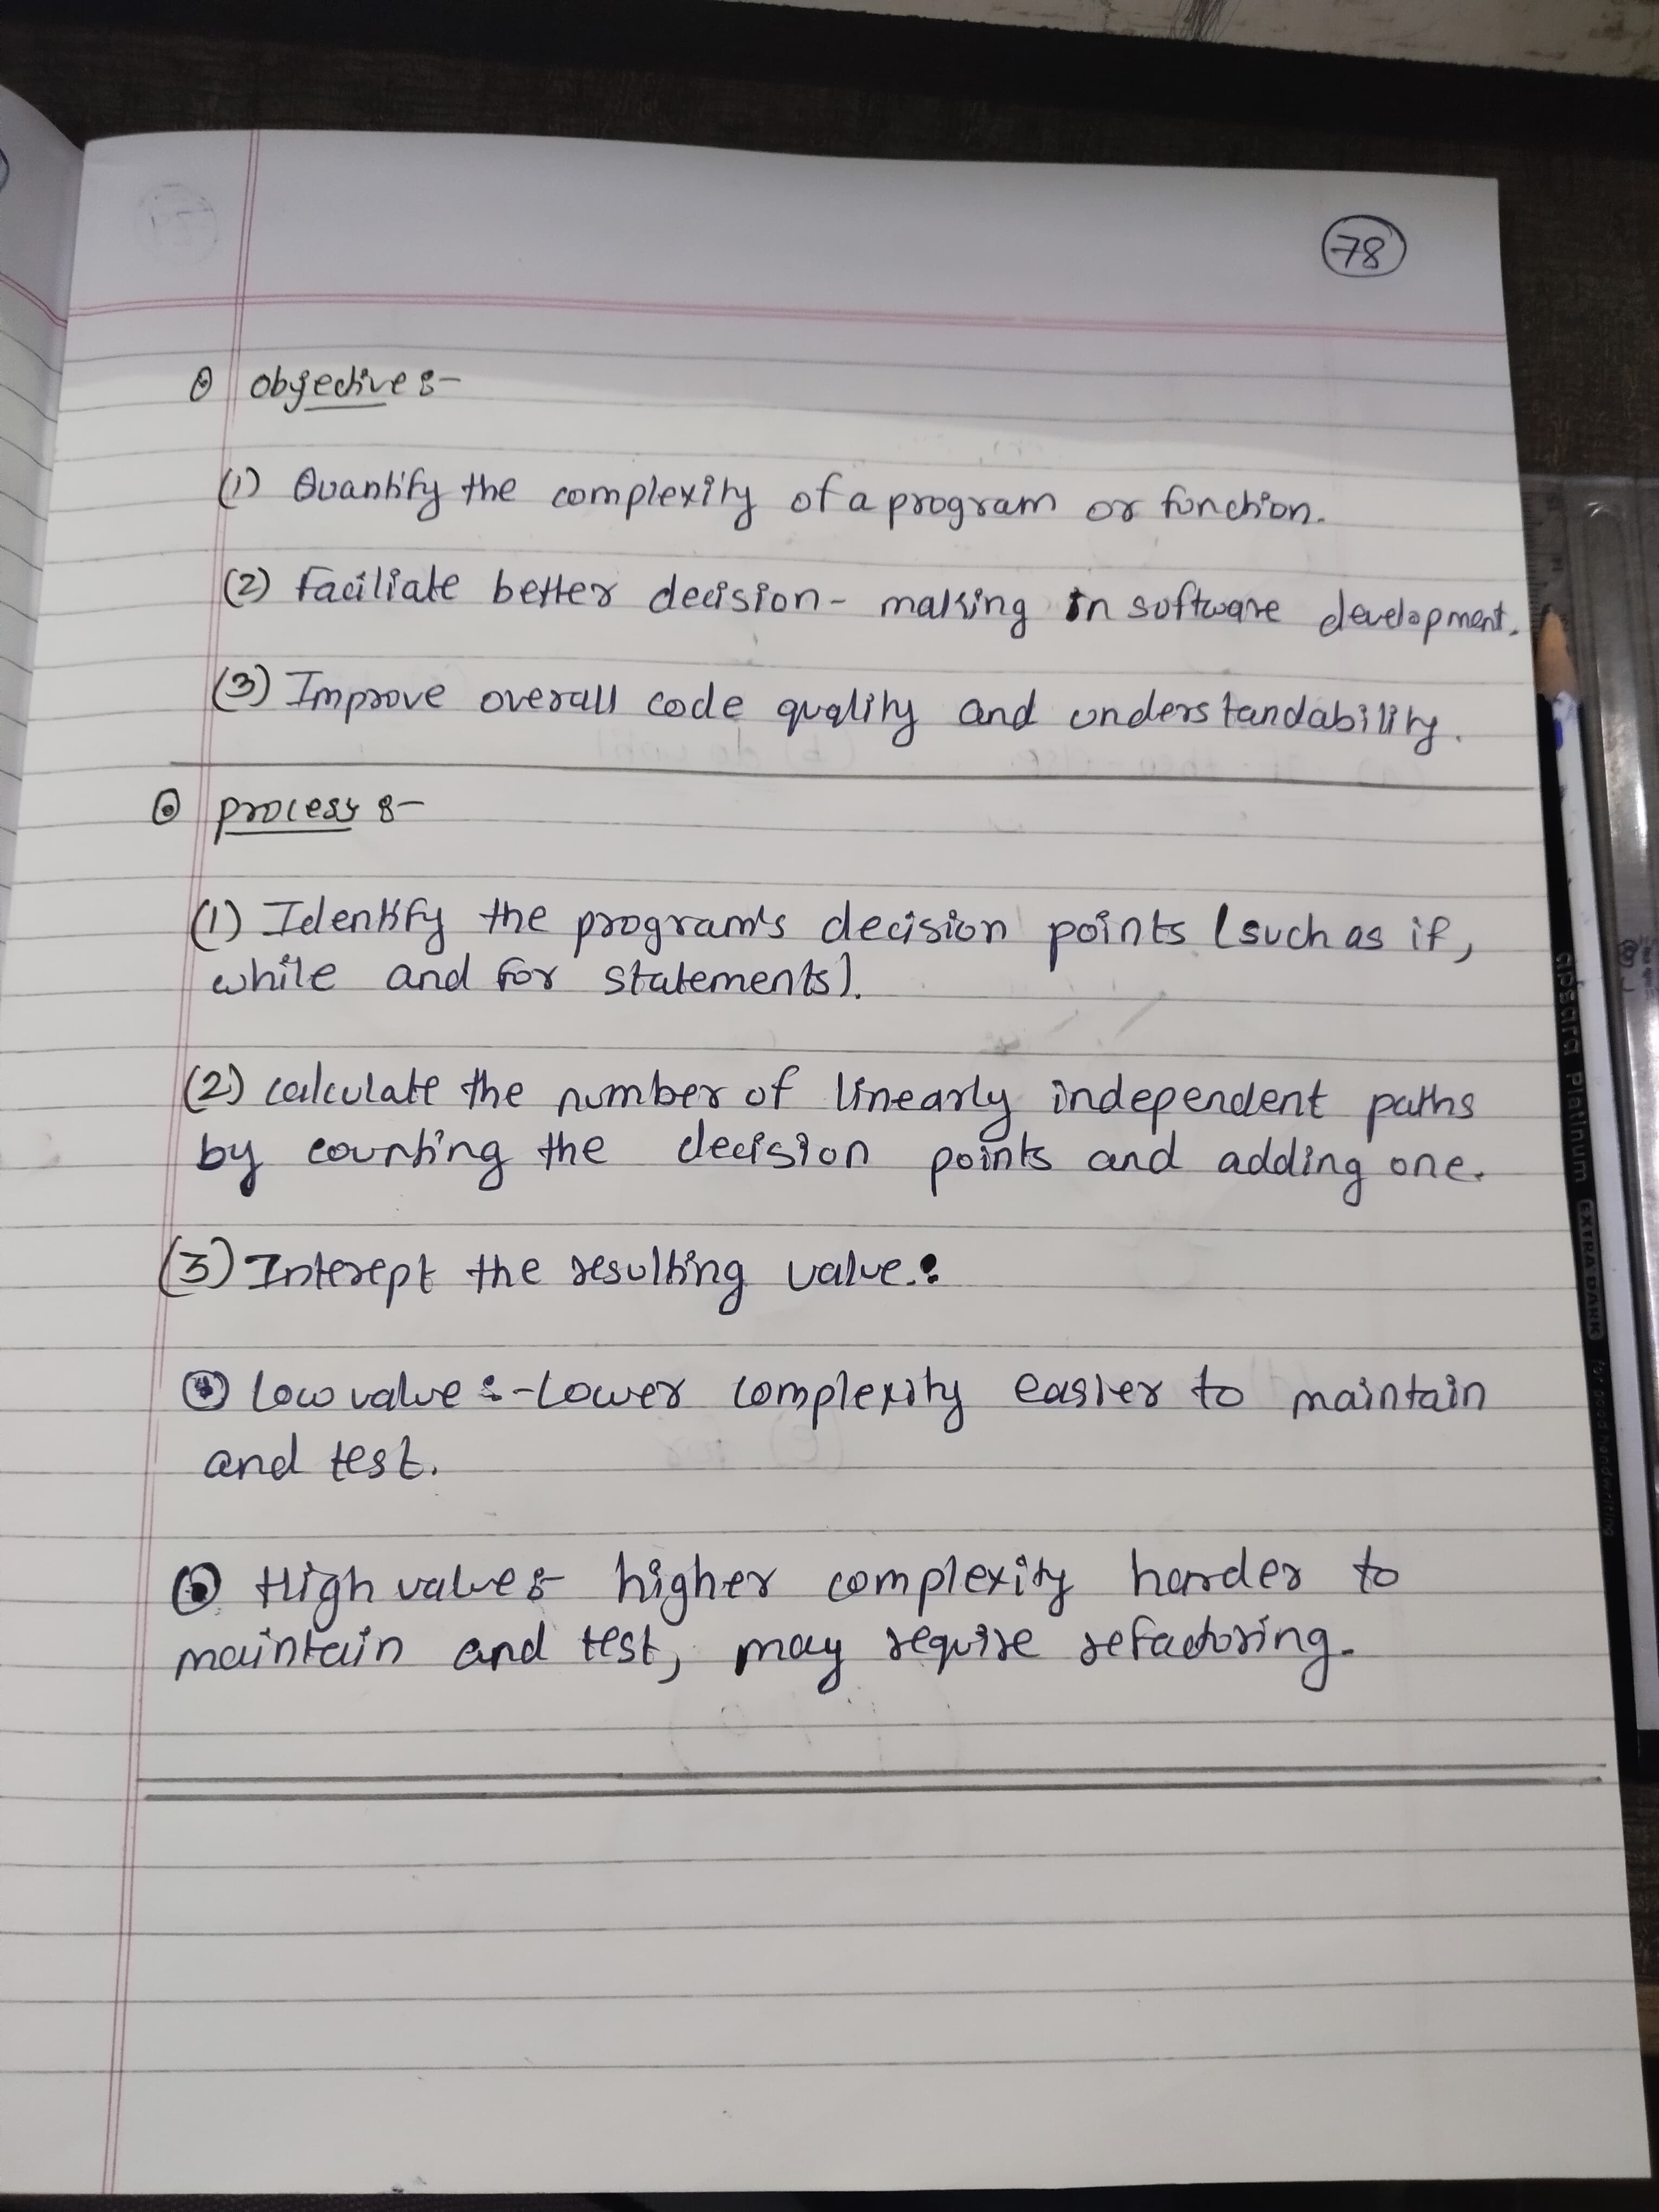 78
objective :-
(1) Quantify the complexity of a program or function.
(2) Faciliate better decision - making in software development.
(3) Improve overall code quality and understandability.
process :-
(1) Identify the program's decision points (such as if,
while and for statements).
(2) calculate the number of linearly independent paths
by counting the decision points and adding one.
(3) Interept the resulting value.:
Low value :- Lower complexity easier to maintain
and test.
High value :- higher complexity harder to
maintain and test, may require refactoring.
apsara Platinum EXTRA DARK for good handwriting